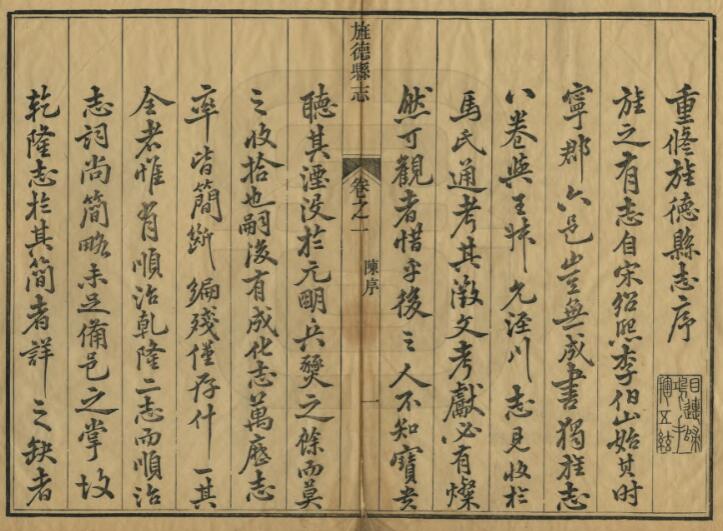 重修旌德縣志序
旌之有志自宋紹熙李伯山始其时
寧郡六邑豈無成書獨旌志
八卷與王柹允涇川志見收於
馬氏通考其徵文考獻必有燦
然可觀者惜乎後之人不知寶貴
旌德縣志
卷之一
陳序
一
聽其湮没於元明兵燹之餘而莫
之收拾也嗣後有成化志萬厯志
率皆簡斷編殘僅存什一其
全者惟有順治乾隆二志而順治
志詞尚簡略未足備邑之掌故
乾隆志於其簡者詳之缺者